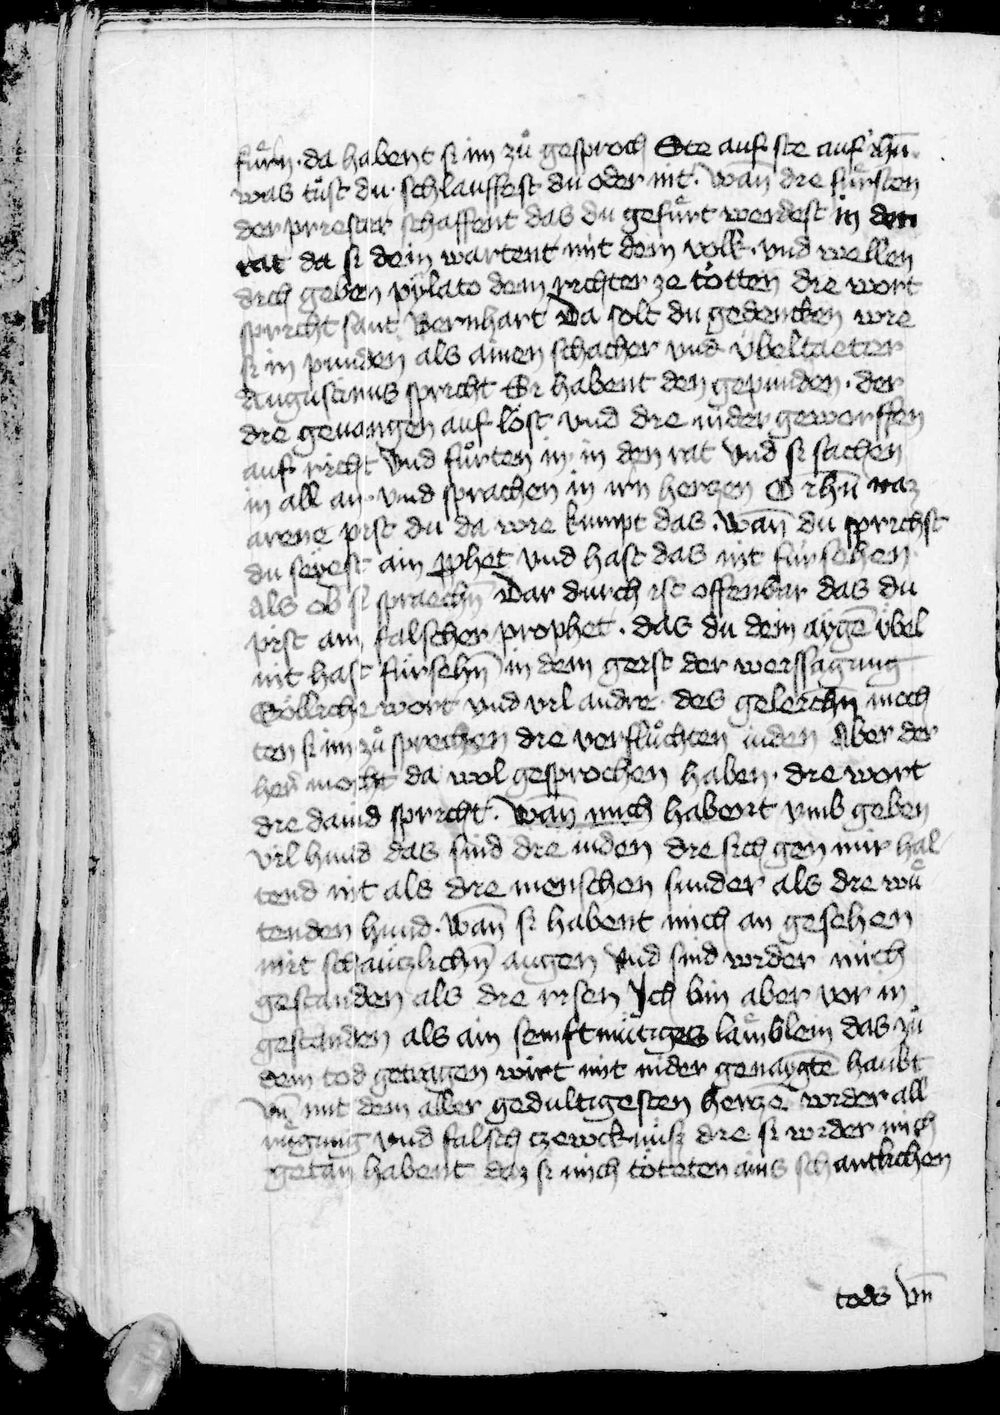 fuͤrn · da habent si im zuͦ gesproch Ste auf ste auf ihū ·
was tuͦst du · schlauffest du oder nit · wan̄ die fuͤrsten
der priester schaffent das du gefuͤrt werdest in den
rat da si dein wartent mit dem volk · vnd wellen
dich geben pylato dem richter ze toͤtten die wort
spricht sant Bernhart Da solt du gedencken wie
si in punden als ainen schacher vnd übeltaeter
Augustinus spricht Si habent den gepunden · der
die geuangen auf loͤst vnd die nider geworffen
auf richt Vnd fuͤrten in · in den rat Vnd si sachen
in all an · vnd sprachen in irn herczen O ihū naz
arene pist du da wie kumpt das · wan̄ du sprichst
du seyest ain ꝓphet vnd hast das nit fürsehen ·
Als ob si spraechn̄ Dar durch ist offenbar das du
pist ain falscher prophet · das du dein aygē übel
nit hast fürsehn̄ in dem geist der weissagung
Soͤllichi wort vnd vil andre des gelerchn̄ moch
ten si im zuͦ sprechen die verfluͦchten iuden Aber der
her̄ mocht da wol gesprochen haben · die wort
die dauid spricht · wan̄ mich habent vmb geben
vil hund das sind die iuden die sich gen mir hal
tend nit als die menschen sunder als die wuͤ
tenden hund · wan̄ si habent mich an gesehen
mit schaüczlichn̄ augen Vnd sind wider mich
gestanden als die risen Ich bin aber vor in
gestanden als ain senftmütiges laͤmblein das zuͦ
dem tod getragen wirt mit nider genaygtē haubt
vn̄ mit dem aller gedultigesten herczē wider all
ruͤgung vnd falsch czewcknüsz die si wider mich
getan habent daz si mich toͤteten ains schantlichen
tods vn̄